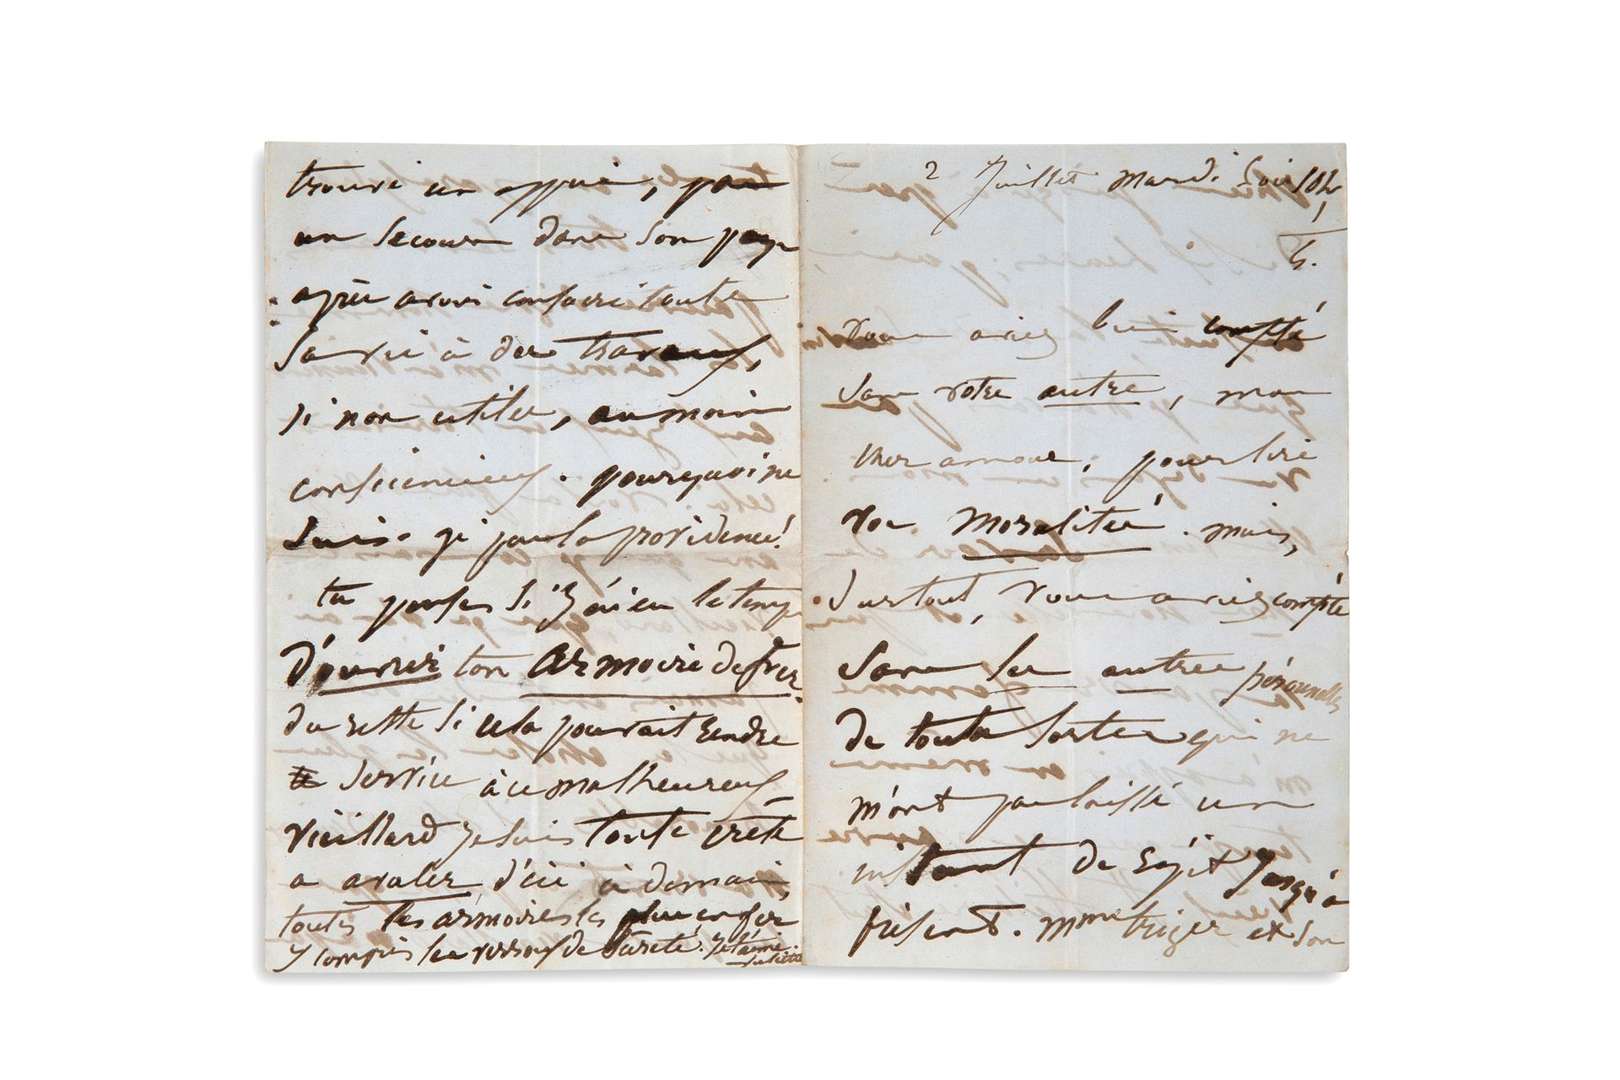 trouvé un appui, pas
un secours dans son pays
après avoir consacré toute
sa vie à des travaux,
si non utiles, au moins
consciencieux. pourquoi ne
suis-je pas la providence!
tu penses si j'ai eu le temps
d'ouvrir ton armoire de fer.
du reste si cela pouvait rendre
service à ce malheureux
vieillard je suis toute prête
a avaler d'ici à demain,
toutes les armoires les plus en fer
y compris les verroux de sureté. Je t'aime.
Juliette
2 juillet mardi soir 10h
Vous aviez bien compté
sans votre autre, mon
cher amour, pour lire
vos moralités. mais,
surtout, vous aviez compté
sans les autres péronnelles
de toutes sortes qui ne
m'ont pas laissé un
instant de répit jusqu'à
présent. Mme triger et son